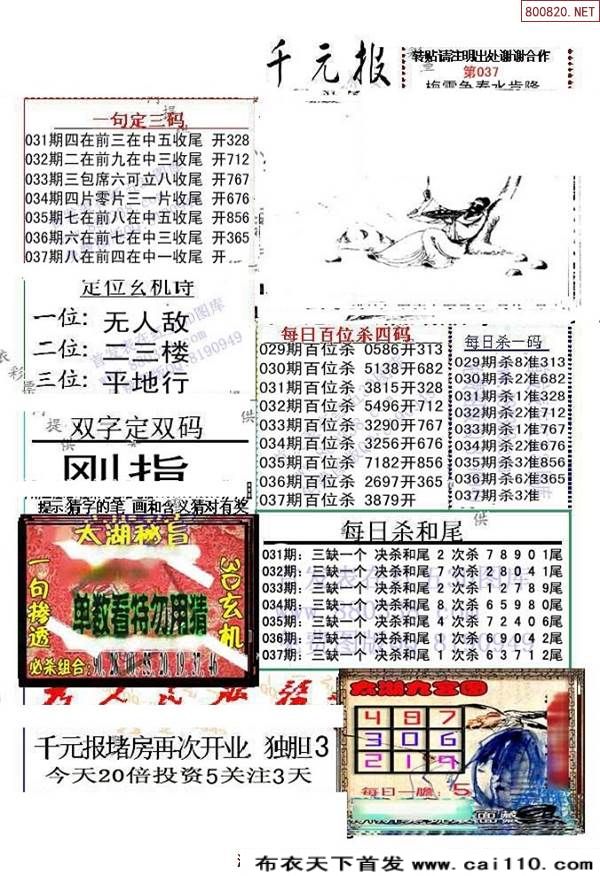 800820.NET
千元报
转贴请注明出处谢谢合作
第037
一句定三码
031期四在前三在中五收尾 开328
032期二在前九在中三收尾 开712
033期三包席六可立八收尾 开767
034期四片零片三一片收尾 开676
035期七在前八在中五收尾 开856
036期六在前七在中三收尾 开365
037期八在前四在中一收尾 开
定位玄机诗
一位: 无人敌
二位: 二三楼
三位: 平地行
双字定双码
刚指
提示:猜字的笔 画和含义猜对有奖
每日百位杀四码
029期百位杀 0586开313
030期百位杀 5138开682
031期百位杀 3815开328
032期百位杀 5496开712
033期百位杀 3290开767
034期百位杀 3256开676
035期百位杀 7182开856
036期百位杀 2697开365
037期百位杀 3879开
每日杀一码
029期杀8准313
030期杀2准682
031期杀1准328
032期杀2准712
033期杀1准767
034期杀2准676
035期杀3准856
036期杀2准365
037期杀3准
每日杀和尾
031期: 三缺一个 决杀和尾 2 次杀 7 8 9 0 1尾
032期: 三缺一个 决杀和尾 7 次杀 2 5 0 4 1尾
033期: 三缺一个 决杀和尾 2 次杀 1 2 7 8 9尾
034期: 三缺一个 决杀和尾 8 次杀 6 5 9 8 0尾
035期: 三缺一个 决杀和尾 4 次杀 7 2 4 0 6尾
036期: 三缺一个 决杀和尾 1 次杀 0 6 9 0 4 2尾
037期: 三缺一个 决杀和尾 1 次杀 6 3 7 1 2尾
太湖秘旨
一句掺透
3D玄机
单数看特勿用猜
必杀组合:
千元报堵房再次开业 独胆3
今天20倍投资5关注3天
太湖九宫图
4 8 7
3 0 6
2 1 9
每日一胆: 5
布衣天下首发 www.cai110.com